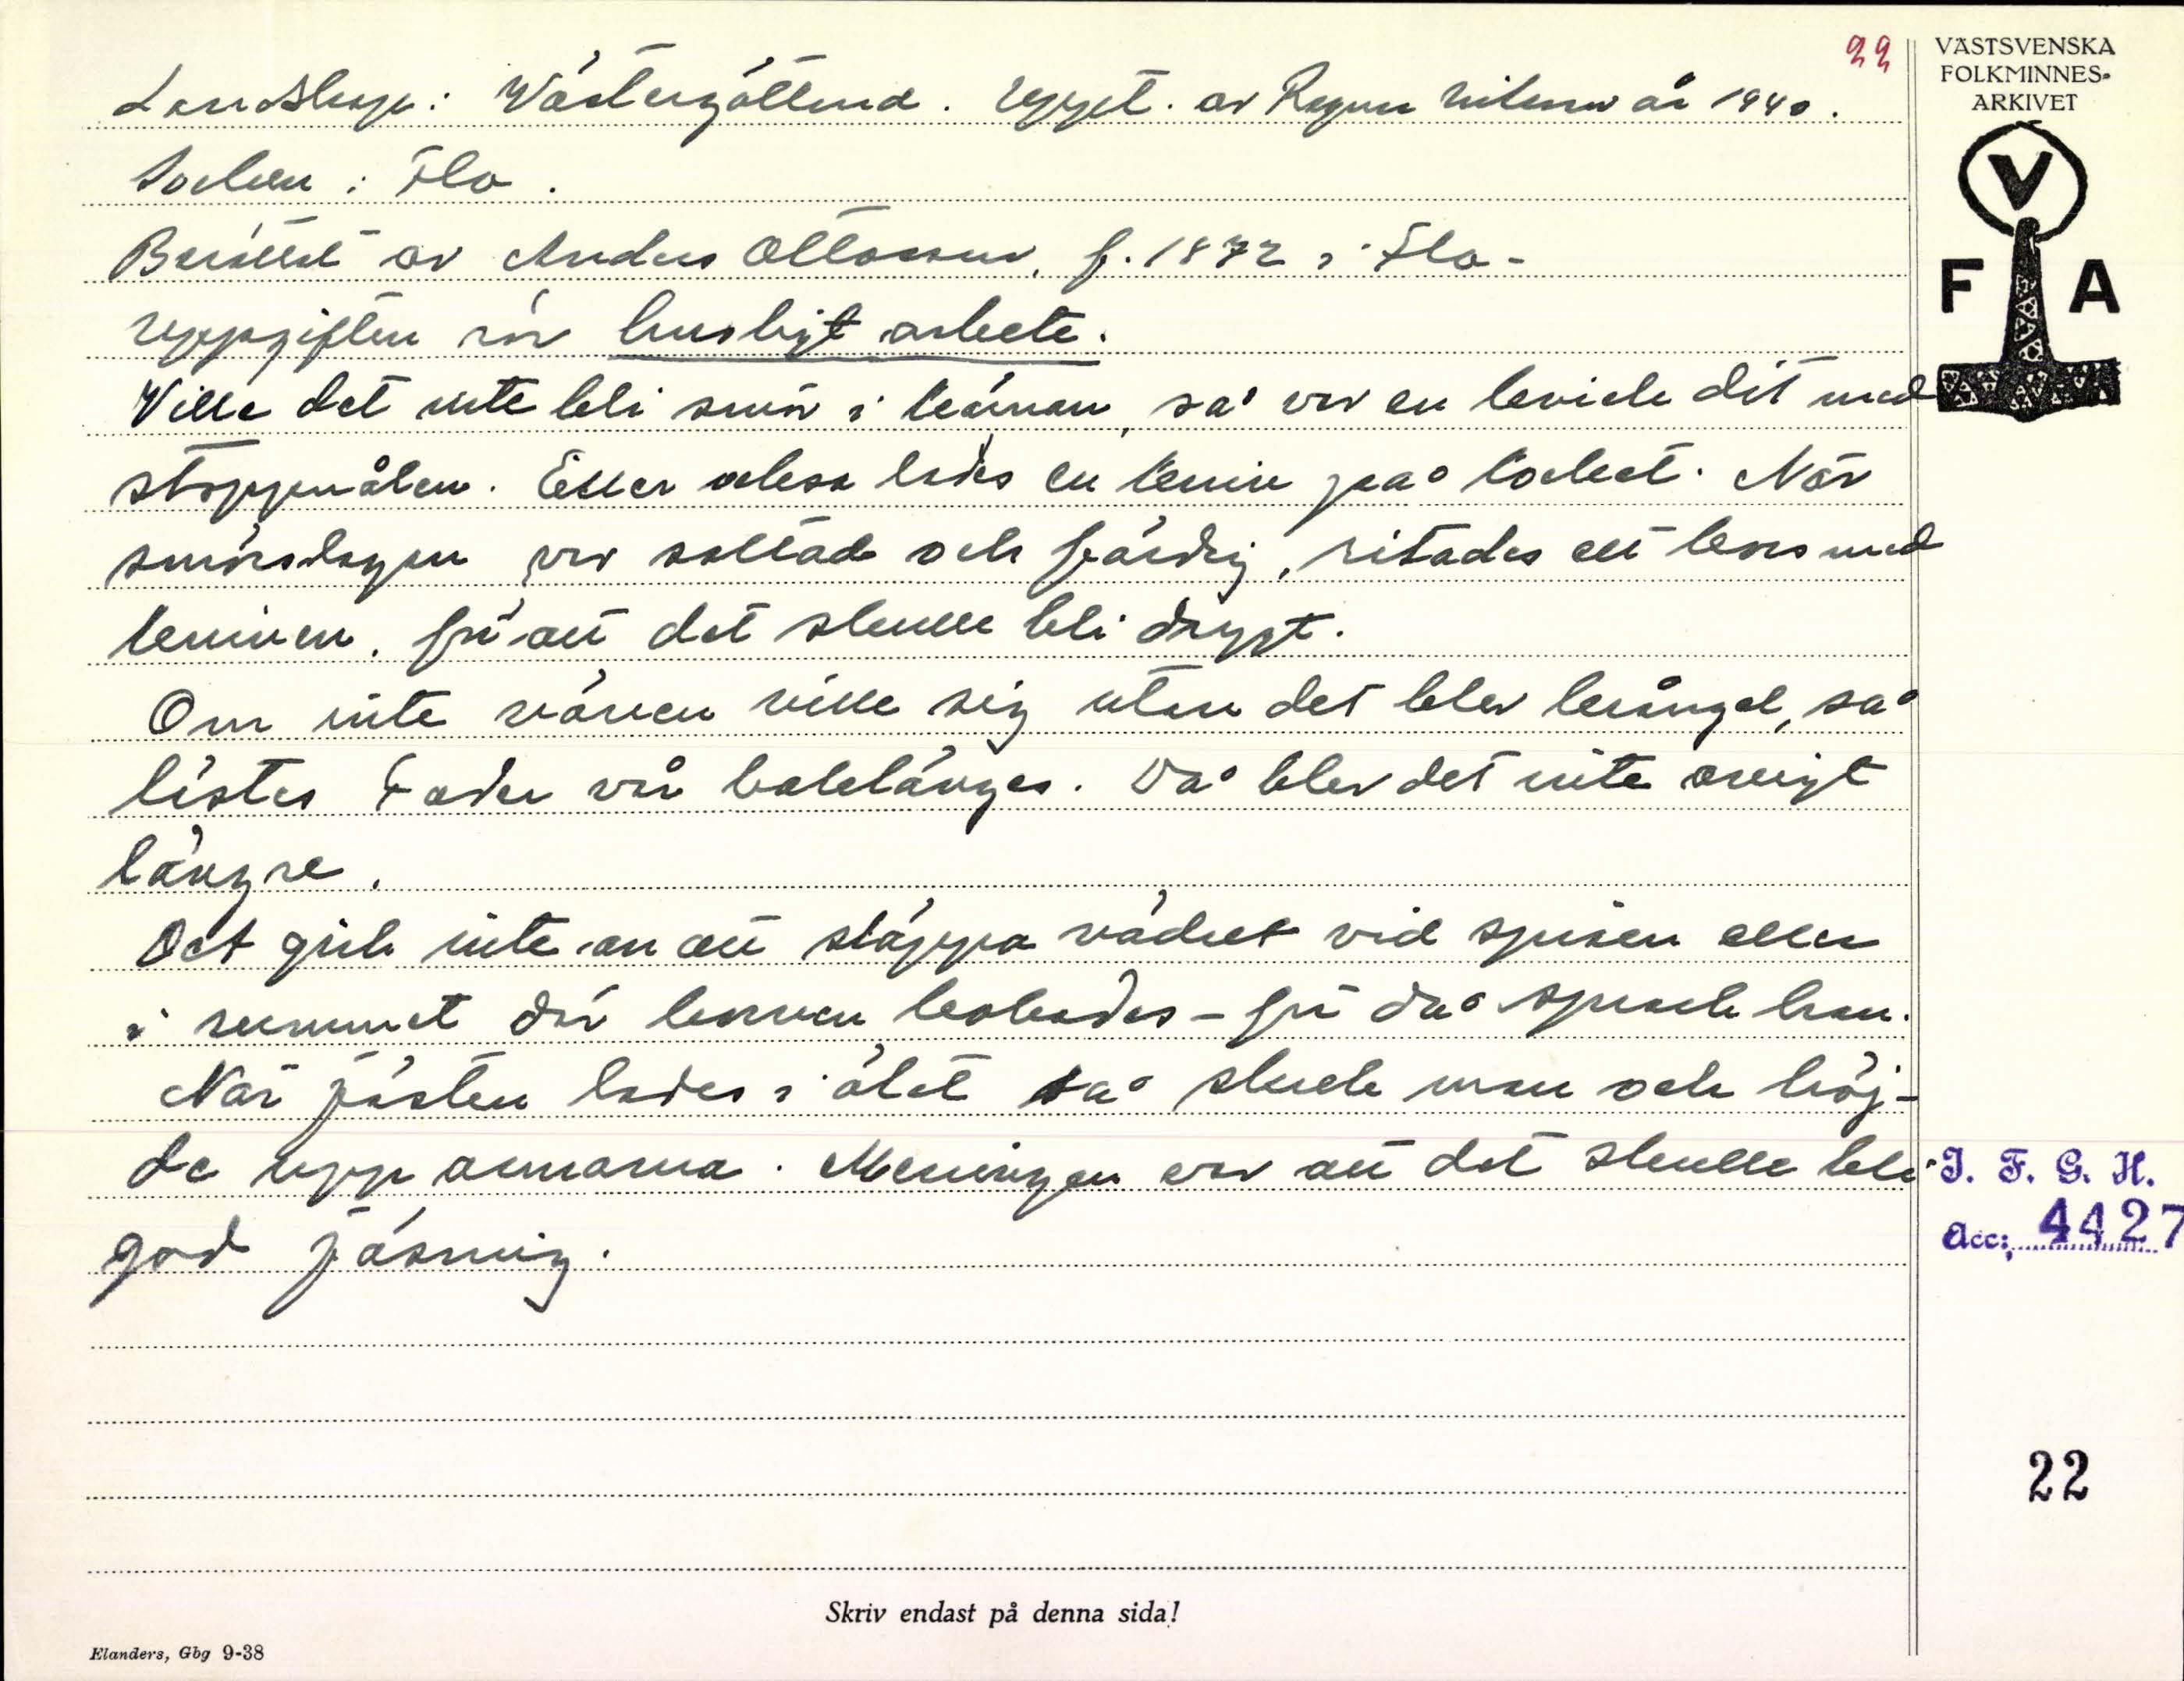 22
Landskap: Västergötland. Uppt. av Ragnar Nilsson år 1940.
Socken: Flo.
Berättat av Anders Ottosson, f. 1872 i Flo.
Uppgiften rör husligt arbete.
Ville det inte bli smör i kärnan, så var en kniv dit med
stoppnålen. Eller också lades en kniv på locket. När
smörslagen var saltad och färdig, ritades ett kors med
kniven, för att det skulle bli drygt.
Om inte väven ville sig utan det blev krångel, så
lästes Fader vår baklänges. Då blev det inte svårigt
längre.
Det gick inte an att släppa vädret vid spisen eller
i rummet där korven kokades – för då sprack han.
När jästen lades i ölet så skrek man och höj-
de upp armarna. Meningen var att det skulle bli
god jäsning.
VÄSTSVENSKA
FOLKMINNES-
ARKIVET
V
F A
I. F. G. H.
Acc: 4427
22
Skriv endast på denna sida!
Elanders, Gbg 9-38